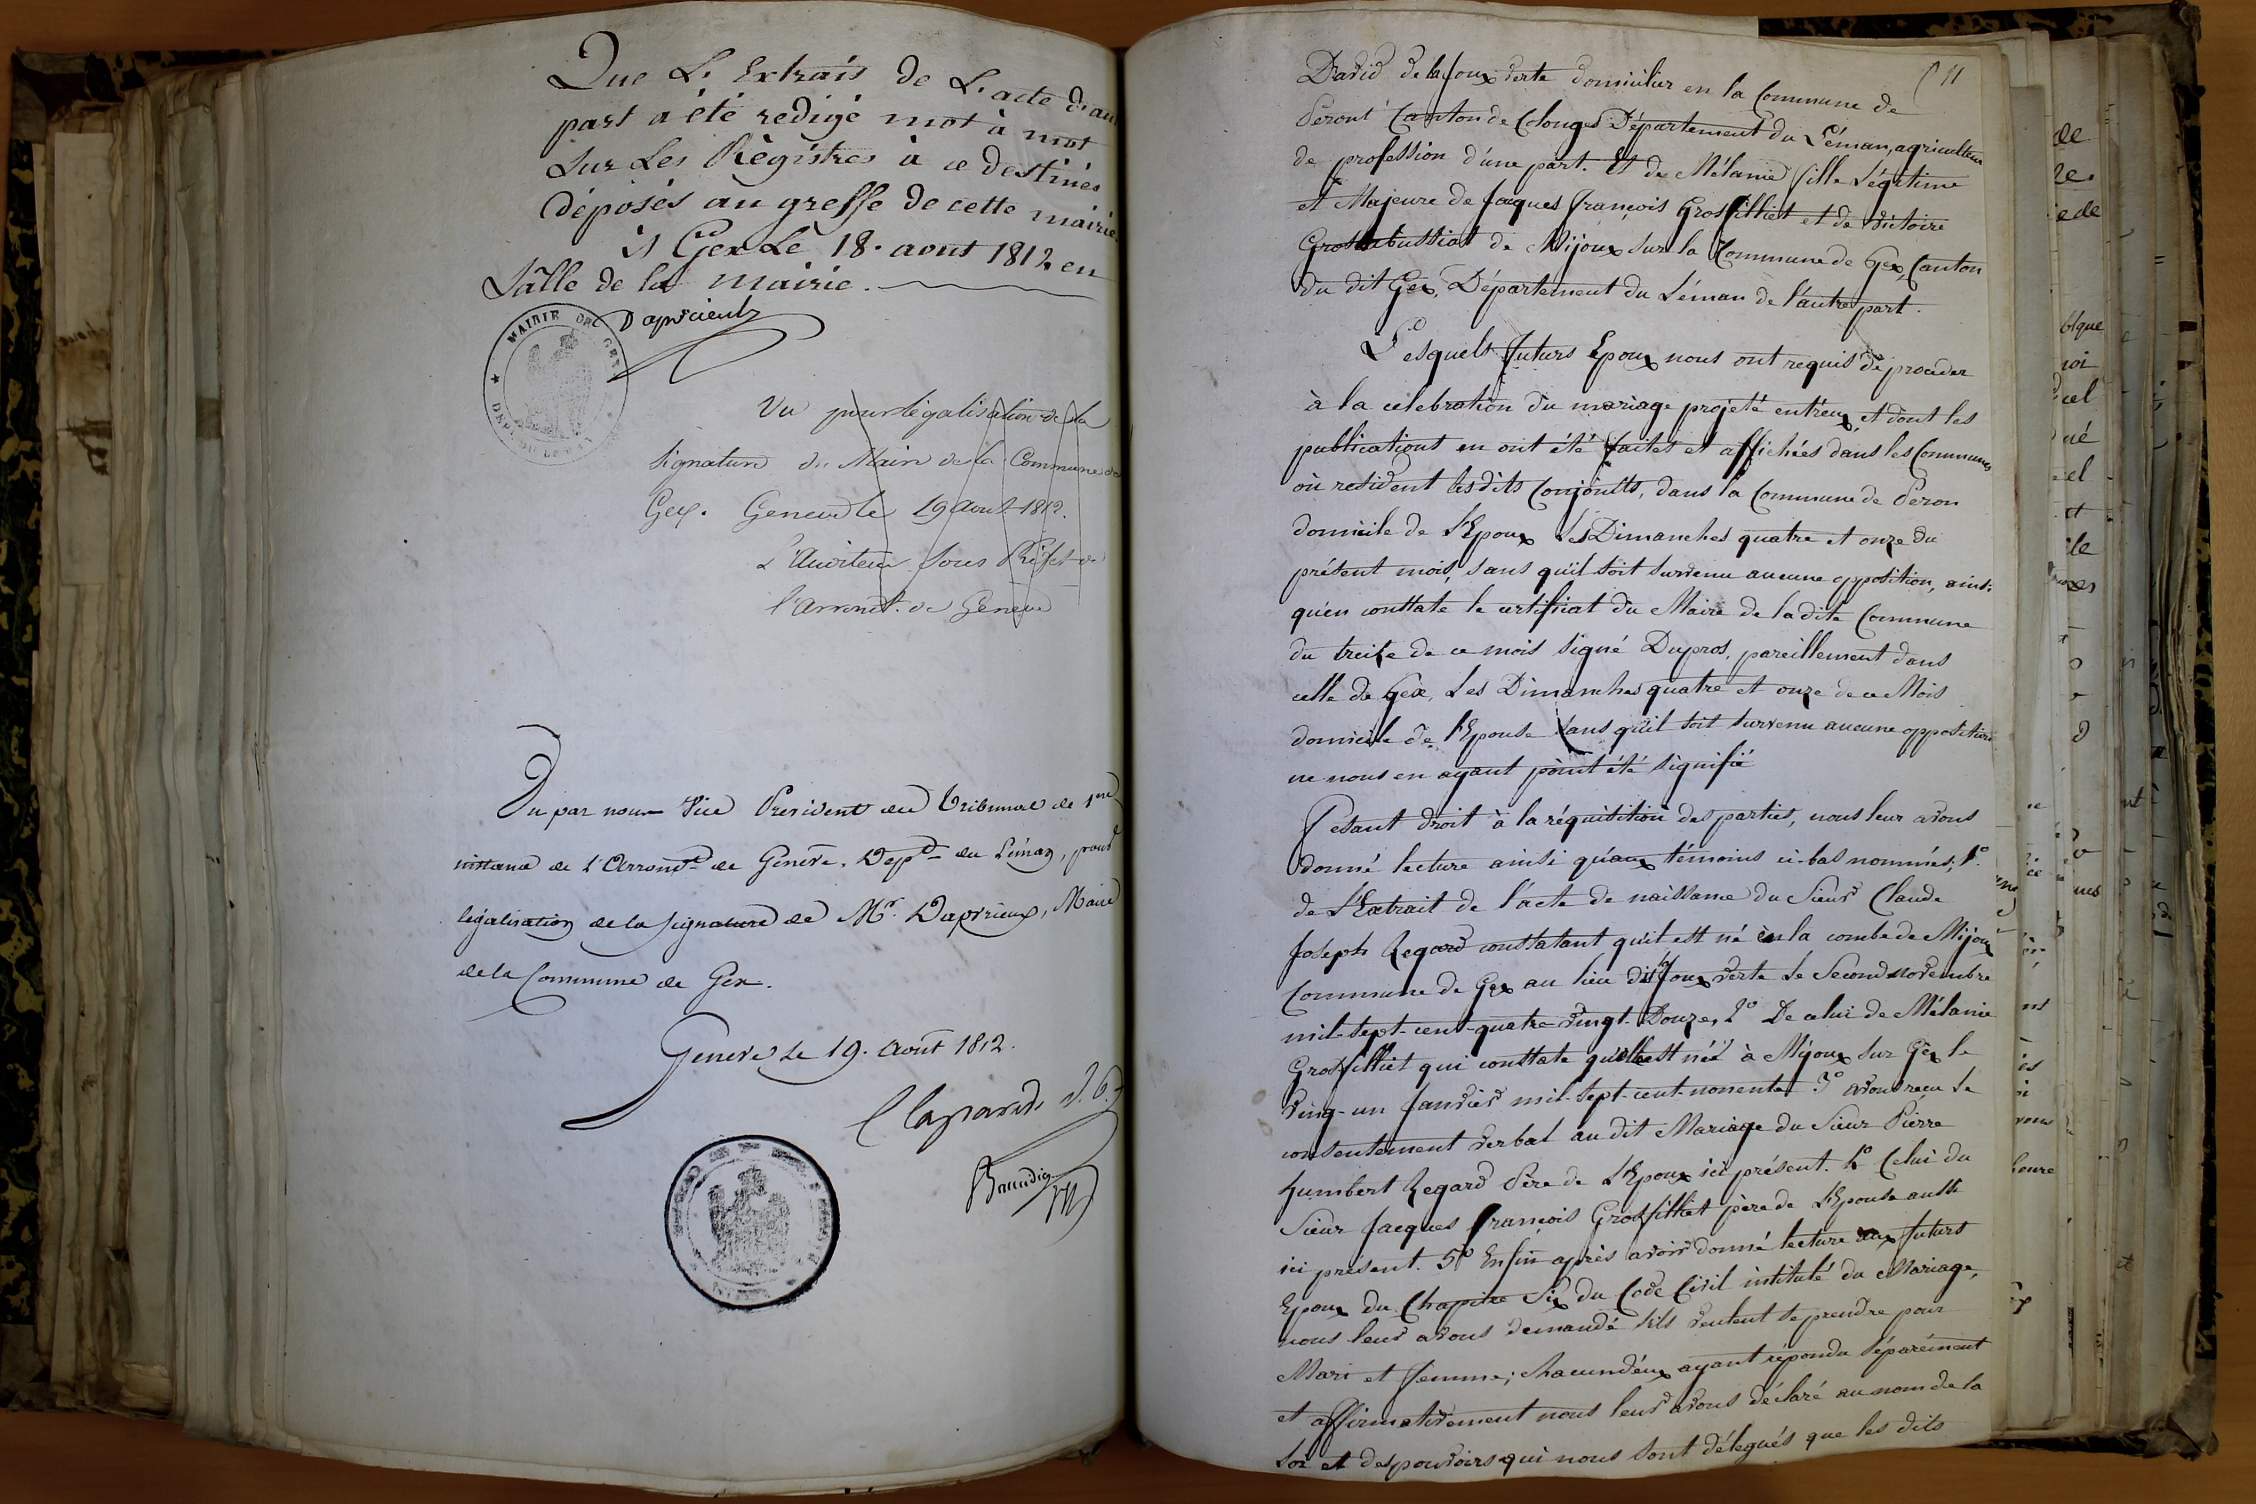 Que L'Extrais de L'acte d'au
part a été redigé mot à mot
sur Les Règistres à ce destinés
déposés au greffe de cette mairie.
A Gex Le 18. aout 1812 en
Salle de la mairie.
MAIRIE DE GEX
Vu pour légalisation de la
signature du Maire de la Commune de
Gex. Geneve le 19 Aout 1812.
L'Auditeur Sous Préfet de
l'arrondt. de Geneve
Vu par nous Vice President du Tribunal de 1ere
instance de l'Arrondt de Genève, Dept du Léman, pour
légalisation de la signature de Mr. Daprieux, Maire
de la Commune de Gex.
Geneve le 19. Août 1812.
Claparede
11
David de la Joux verte domicilier en la Commune de
Peront Canton de Colonges Département du Léman, agriculteur
de profession d'une part. Et de Mélanie fille Légitime
et Majeure de Jacques François Grosfilliet et de Victoire
de Mijoux sur la Commune de Gex, Canton
du dit Gex, Département du Léman de l'autre part.
Lesquels futurs Epoux nous ont requis de proceder
à la celebration du mariage projeté entr'eux, et dont les
publications en ont été faites et affichées dans les Communes
où resident les dits Conjoints, dans la Commune de Péron
domicile de l'Epoux les Dimanches quatre et onze du
présent mois, sans qu'il soit survenu aucune opposition, ainsi
qu'en constate le certificat du Maire de la dite Commune
du treize de ce mois signé Dupros, pareillement dans
celle de Gex, Les Dimanches quatre et onze de ce Mois
domicile de l'Epouse sans qu'il soit survenu aucune opposition
ne nous en ayant point été signifié
Fesant droit à la réquisition des parties, nous leur avons
donné lecture ainsi qu'aux témoins ci-bas nommés; 1°
de L'Extrait de l'acte de naissance du Sieur Claude
Joseph Regard constatant qu'il est né en la combe de Mijoux
Commune de Gex au lieu dit Joux verte le Second novembre
mil-sept-cent-quatre-vingt-Douze, 2° De celui de Mélanie
Grosfilliet qui constate qu'elle est née à Mijoux sur Gex le
ving-un Janvier mil-sept-cent-nonente 3° avons reçu le
consentement verbal au dit Mariage du Sieur Pierre
humbert Regard Père de L'Epoux ici présent. 4° Celui du
Sieur Jacques François Grosfilliet père de L'Epouse aussi
ici présent. 5° Enfin après avoir donné lecture aux futurs
Epoux du Chapitre Six du Code Civil intitulé du Mariage,
nous leur avons demandé s'ils veulent se prendre pour
Mari et femme; chacun d'eux ayant répondu séparément
et affirmativement nous leur avons déclaré au nom de la
Loi et des pouvoirs qui nous sont délegués que les dits